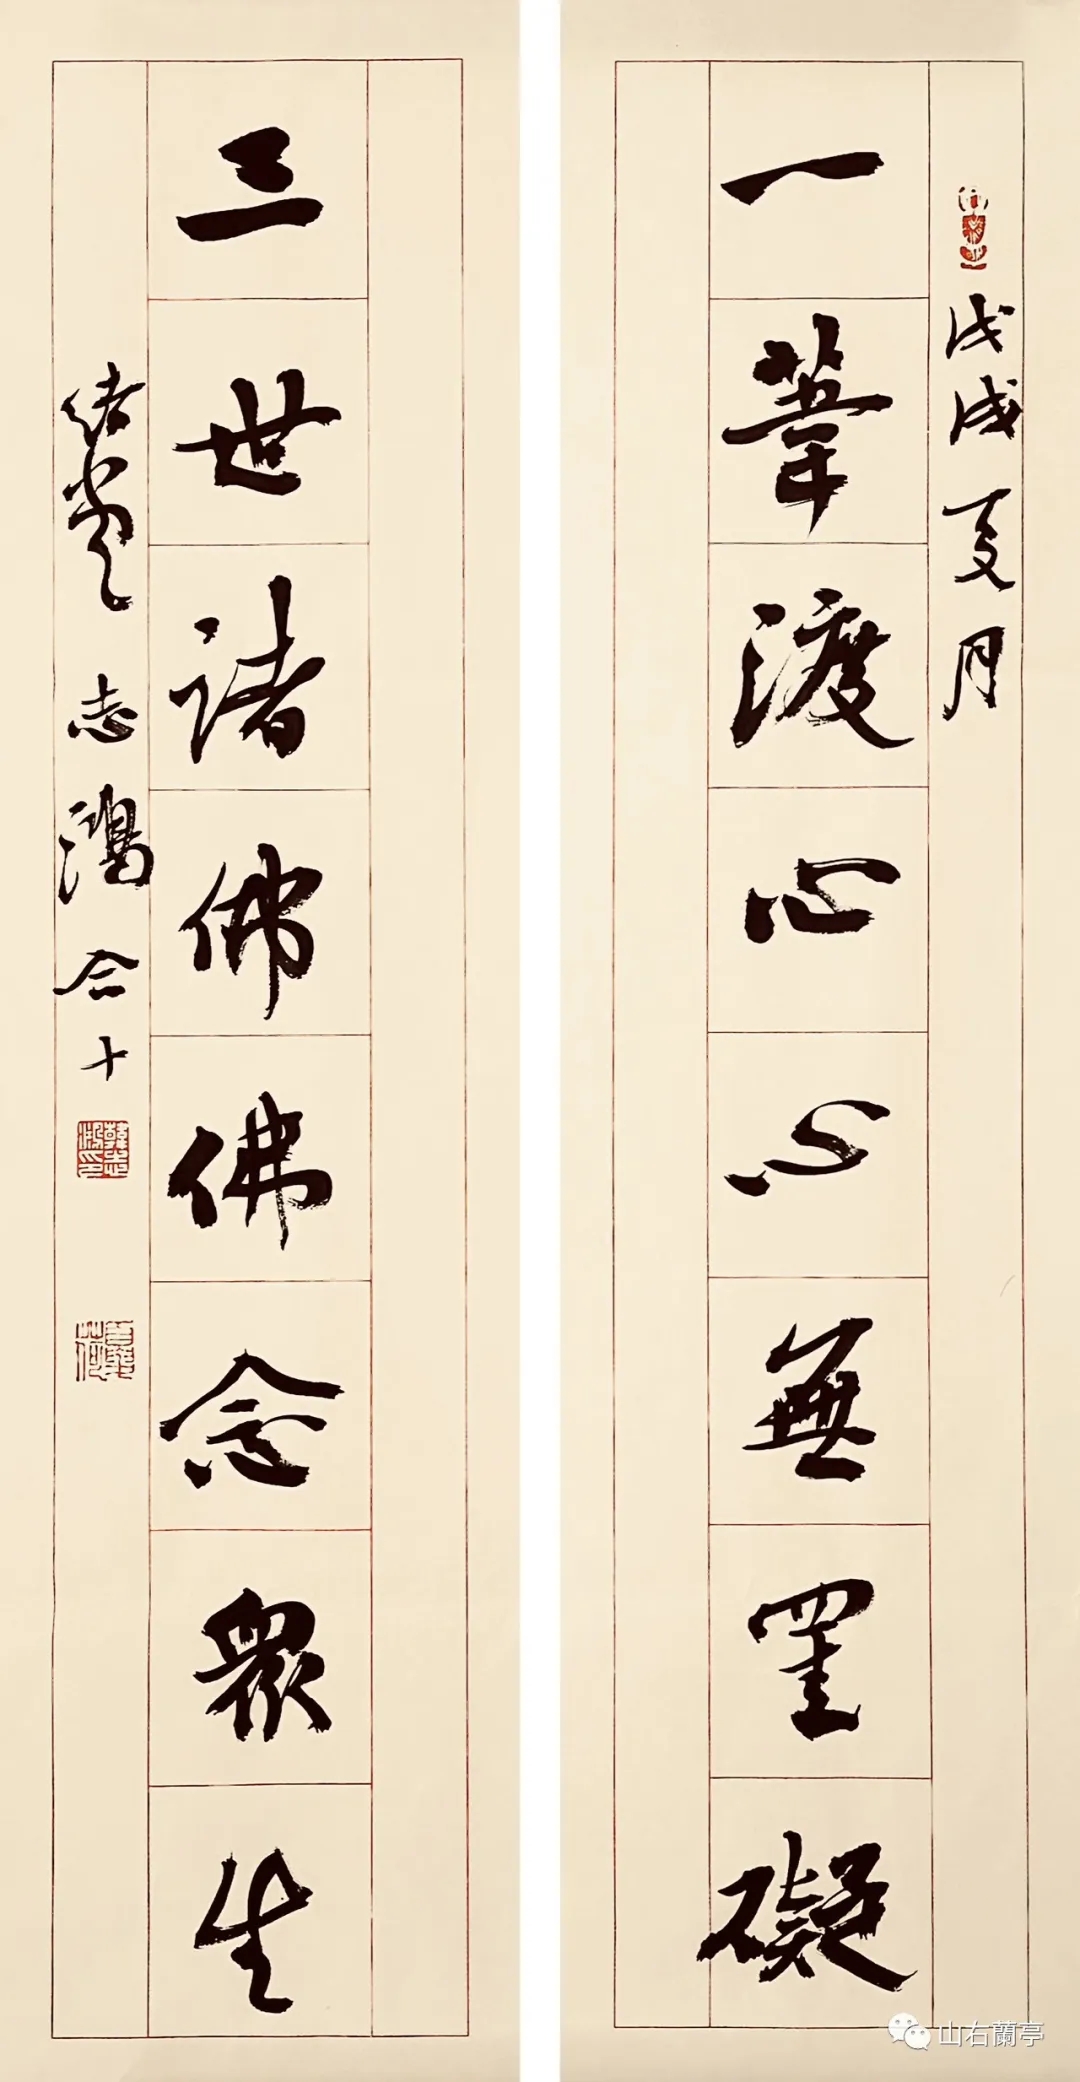 戊戌夏月
一葦渡心心無罣礙
三世諸佛佛念眾生
志鴻合十
山右蘭亭